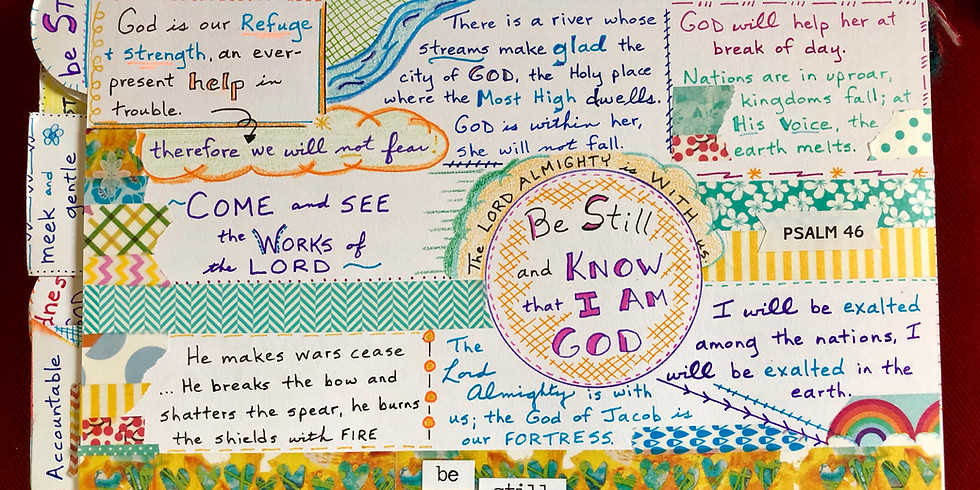 God is our Refuge
+ strength, an ever-
present help in
trouble.
therefore we will not fear!
There is a river whose
streams make glad the
city of GOD, the Holy place
where the Most High dwells.
GOD is within her,
she will not fall.
GOD will help her at
break of day.
Nations are in uproar,
kingdoms fall; at
His Voice, the
earth melts.
COME and SEE
the WORKS of
the LORD
The LORD ALMIGHTY is WITH us.
Be Still
and KNOW
that I AM
GOD
PSALM 46
He makes wars cease
... He breaks the bow and
shatters the spear, he burns
the shields with FIRE
The
Lord
Almighty is with
us; the God of Jacob is
our FORTRESS.
I will be exalted
among the nations, I
will be exalted in the
earth.
be
still
be ST
meek and
gentle
dnes
Accountable